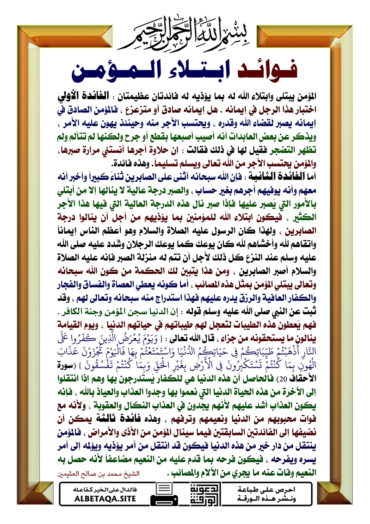 بِسْمِ اللَّهِ الرَّحْمَنِ الرَّحِيمِ
فوائد ابتلاء المؤمن
المؤمن يبتلى وابتلاء الله له بما يؤذيه له فائدتان عظيمتان : الفائدة الأولى
اختبار هذا الرجل في إيمانه . هل إيمانه صادق أو متزعزع ، فالمؤمن الصادق في
إيمانه يصبر لقضاء الله وقدره ، ويحتسب الأجر منه وحينئذ يهون عليه الأمر ،
ويذكر عن بعض العابدات أنه أصيب أصبعها بقطع أو جرح ولكنها لم تتألم ولم
تظهر التضجر فقيل لها في ذلك فقالت : إن حلاوة أجرها أنستني مرارة صبرها،
والمؤمن يحتسب الأجر من الله تعالى ويسلم تسليما. وهذه فائدة.
أما الفائدة الثانية : فإن الله سبحانه أثنى على الصابرين ثناء كبيرا وأخبر أنه
معهم وأنه يوفيهم أجرهم بغير حساب ، والصبر درجة عالية لا ينالها إلا من أبتلي
بالأمور التي يُصبر عليها فإذا صبر نال هذه الدرجة العالية التي فيها هذا الأجر
الكثير ، فيكون ابتلاء الله للمؤمنين بما يؤذيهم من أجل أن ينالوا درجة
الصابرين ، ولهذا كان الرسول عليه الصلاة والسلام وهو أعظم الناس إيمانا
واتقاهم لله وأخشاهم لله كان يوعك كما يوعك الرجلان وشدد عليه صلى الله
عليه وسلم عند النزع كل ذلك لأجل أن تتم له منزلة الصبر فإنه عليه الصلاة
والسلام أصبر الصابرين . ومن هذا يتبين لك الحكمة من كون الله سبحانه
وتعالى يبتلي المؤمن بمثل هذه المصائب ، أما كونه يعطي العصاة والفساق والفجار
والكفار العافية والرزق يدره عليهم فهذا استدراج منه سبحانه وتعالى لهم ، وقد
ثبت عن النبي صلى الله عليه وسلم قوله : إن الدنيا سجن المؤمن وجنة الكافر .
فهم يعطون هذه الطيبات لتعجل لهم طيباتهم في حياتهم الدنيا ، ويوم القيامة
ينالون ما يستحقونه من جزاء ، قال الله تعالى : ( وَيَوْمَ يُعْرَضُ الَّذِينَ كَفَرُوا عَلَى
النَّارِ أَذْهَبْتُمْ طَيِّبَاتِكُمْ فِي حَيَاتِكُمُ الدُّنْيَا وَاسْتَمْتَعْتُم بِهَا فَالْيَوْمَ تُجْزَوْنَ عَذَابَ
الْهُونِ بِمَا كُنتُمْ تَسْتَكْبِرُونَ فِي الْأَرْضِ بِغَيْرِ الْحَقِّ وَبِمَا كُنتُمْ تَفْسُقُونَ ) (سورة
الأحقاف 20) فالحاصل أن هذه الدنيا هي للكفار يُستدرجون بها وهم إذا انتقلوا
إلى الآخرة من هذه الحياة الدنيا التي نعموا بها وجدوا العذاب والعياذ بالله ، فإنه
يكون العذاب أشد عليهم لأنهم يجدون في العذاب النكال والعقوبة . ولأنه مع
فوات محبوبهم من الدنيا ونعيمهم وترفهم ، وهذه فائدة ثالثة يمكن أن
نضيفها إلى الفائدتين السابقتين فيما سينال المؤمن من الأذى والأمراض ، فالمؤمن
ينتقل من دار خير من هذه الدنيا فيكون قد انتقل من أمر يؤذيه ويؤلمه إلى أمر
يسره ويفرحه ، فيكون فرحه بما قدم عليه من النعيم مضاعفا لأنه حصل به
النعيم وفات عنه ما يجري من الآلام والمصائب . الشيخ محمد بن صالح العثيمين
احرص على طباعة
ونشر هذه الورقة
دعوية
الورقة
فالدال على الخير كفاعله
ALBETAQA.SITE